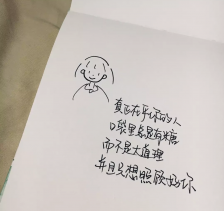 真正在乎你的人
口袋里总是有糖
而不是大道理
并且只想照顾好你